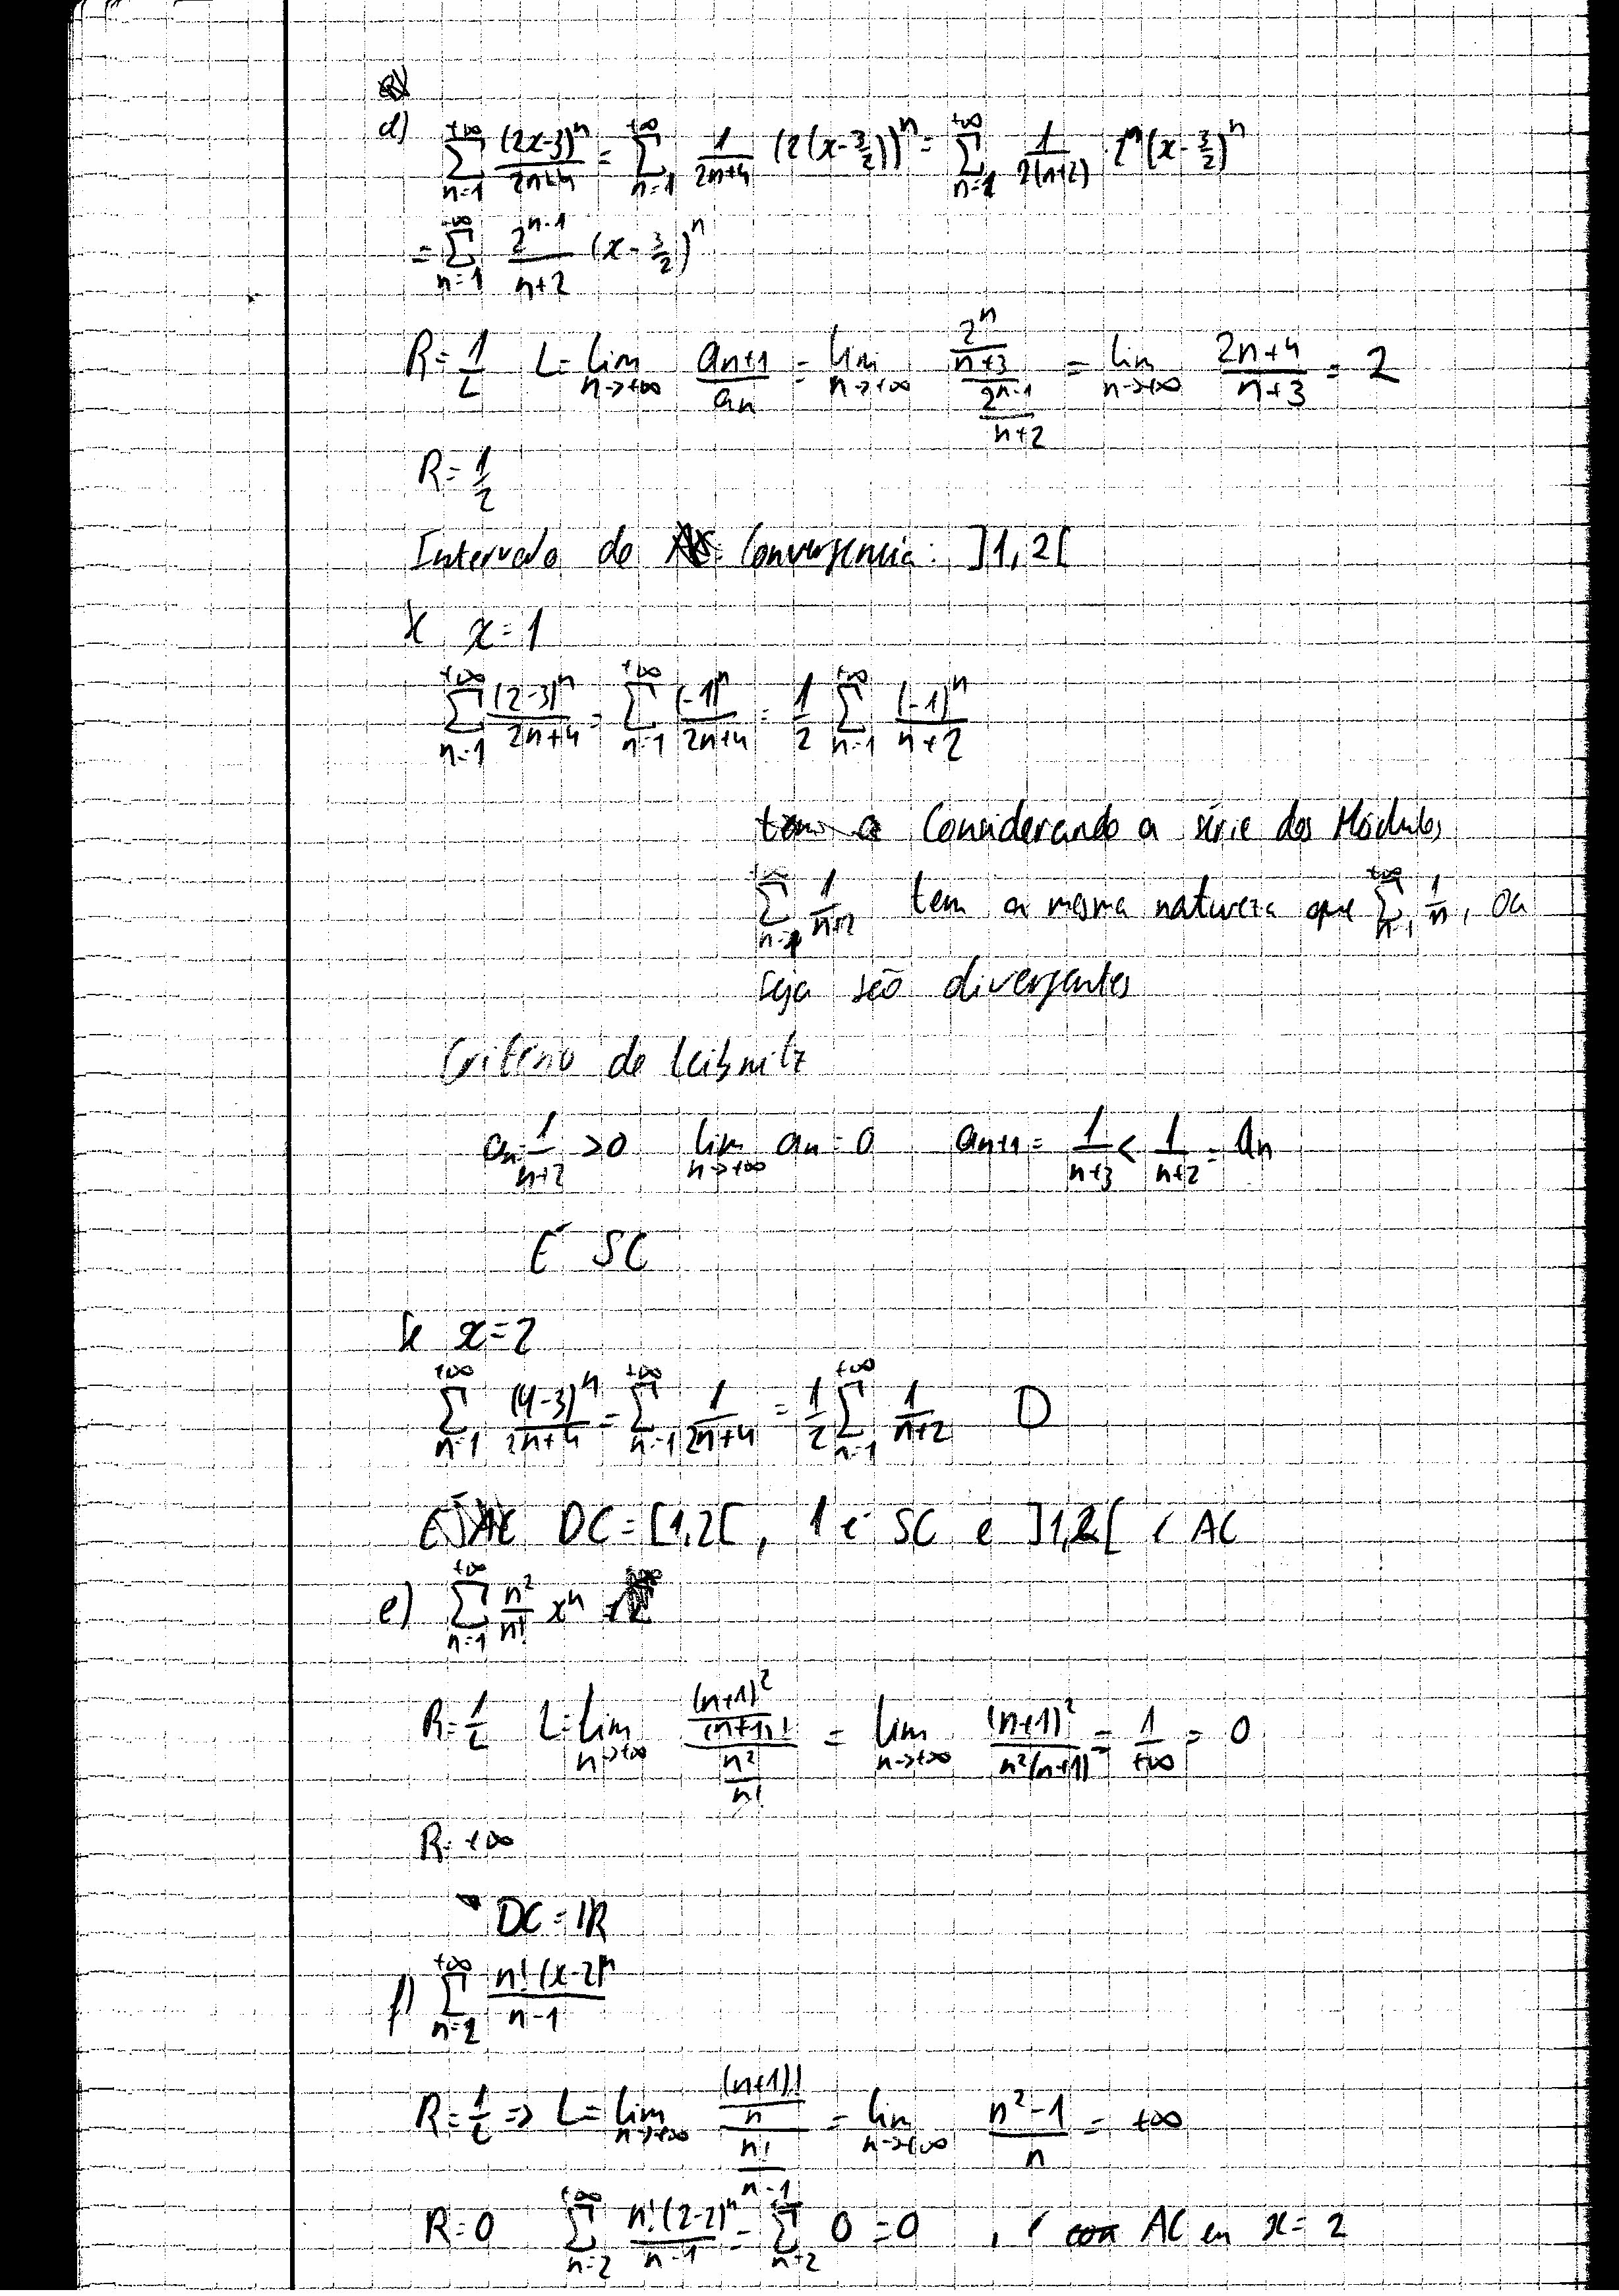 d) $\sum_{n=1}^{+\infty} \frac{(2x-3)^n}{2n+4} = \sum_{n=1}^{+\infty} \frac{1}{2n+4} (2(x-\frac{3}{2}))^n = \sum_{n=1}^{+\infty} \frac{1}{2(n+2)} \cdot 2^n (x-\frac{3}{2})^n$
$= \sum_{n=1}^{+\infty} \frac{2^{n-1}}{n+2} (x-\frac{3}{2})^n$
$R = \frac{1}{L} \quad L = \lim_{n\to+\infty} \frac{a_{n+1}}{a_n} = \lim_{n\to+\infty} \frac{\frac{2^n}{n+3}}{\frac{2^{n-1}}{n+2}} = \lim_{n\to+\infty} \frac{2n+4}{n+3} = 2$
$R = \frac{1}{2}$
Intervalo de Convergencia: ]1,2[
x = 1
$\sum_{n=1}^{+\infty} \frac{(2-3)^n}{2n+4} = \sum_{n=1}^{+\infty} \frac{(-1)^n}{2n+4} = \frac{1}{2} \sum_{n=1}^{+\infty} \frac{(-1)^n}{n+2}$
Considerando a série dos Módulos
$\sum_{n=1}^{+\infty} \frac{1}{n+2}$ tem a mesma natureza que $\sum_{n=1}^{+\infty} \frac{1}{n}$, ou
seja são divergentes
Critério de Leibnitz
$a_n = \frac{1}{n+2} > 0 \quad \lim_{n\to+\infty} a_n = 0 \quad a_{n+1} = \frac{1}{n+3} < \frac{1}{n+2} = a_n$
É SC
Se x = 2
$\sum_{n=1}^{+\infty} \frac{(4-3)^n}{2n+4} = \sum_{n=1}^{+\infty} \frac{1}{2n+4} = \frac{1}{2} \sum_{n=1}^{+\infty} \frac{1}{n+2}$ D
DC = [1,2[, 1 é SC e ]1,2[ é AC
e) $\sum_{n=1}^{+\infty} \frac{n^2}{n!} x^n$
$R = \frac{1}{L} \quad L = \lim_{n\to+\infty} \frac{\frac{(n+1)^2}{(n+1)!}}{\frac{n^2}{n!}} = \lim_{n\to+\infty} \frac{(n+1)^2}{n^2(n+1)} = \frac{1}{+\infty} = 0$
R = +∞
DC = ℝ
f) $\sum_{n=2}^{+\infty} \frac{n!(x-2)^n}{n-1}$
$R = \frac{1}{L} \Rightarrow L = \lim_{n\to+\infty} \frac{\frac{(n+1)!}{n}}{\frac{n!}{n-1}} = \lim_{n\to+\infty} \frac{n^2-1}{n} = +\infty$
R = 0 $\sum_{n=2}^{+\infty} \frac{n!(2-2)^n}{n-1} = \sum_{n=2}^{+\infty} 0 = 0$, é AC en x = 2